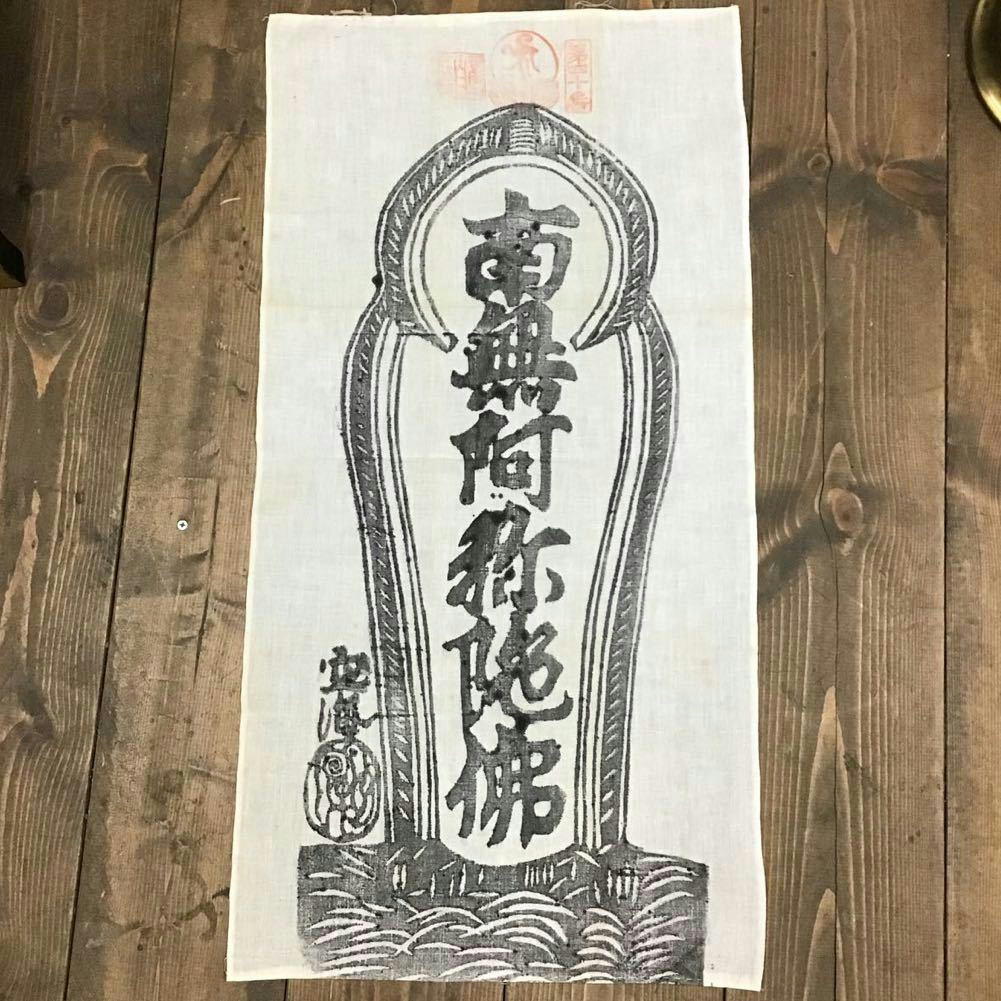 南無阿弥陀佛
空海